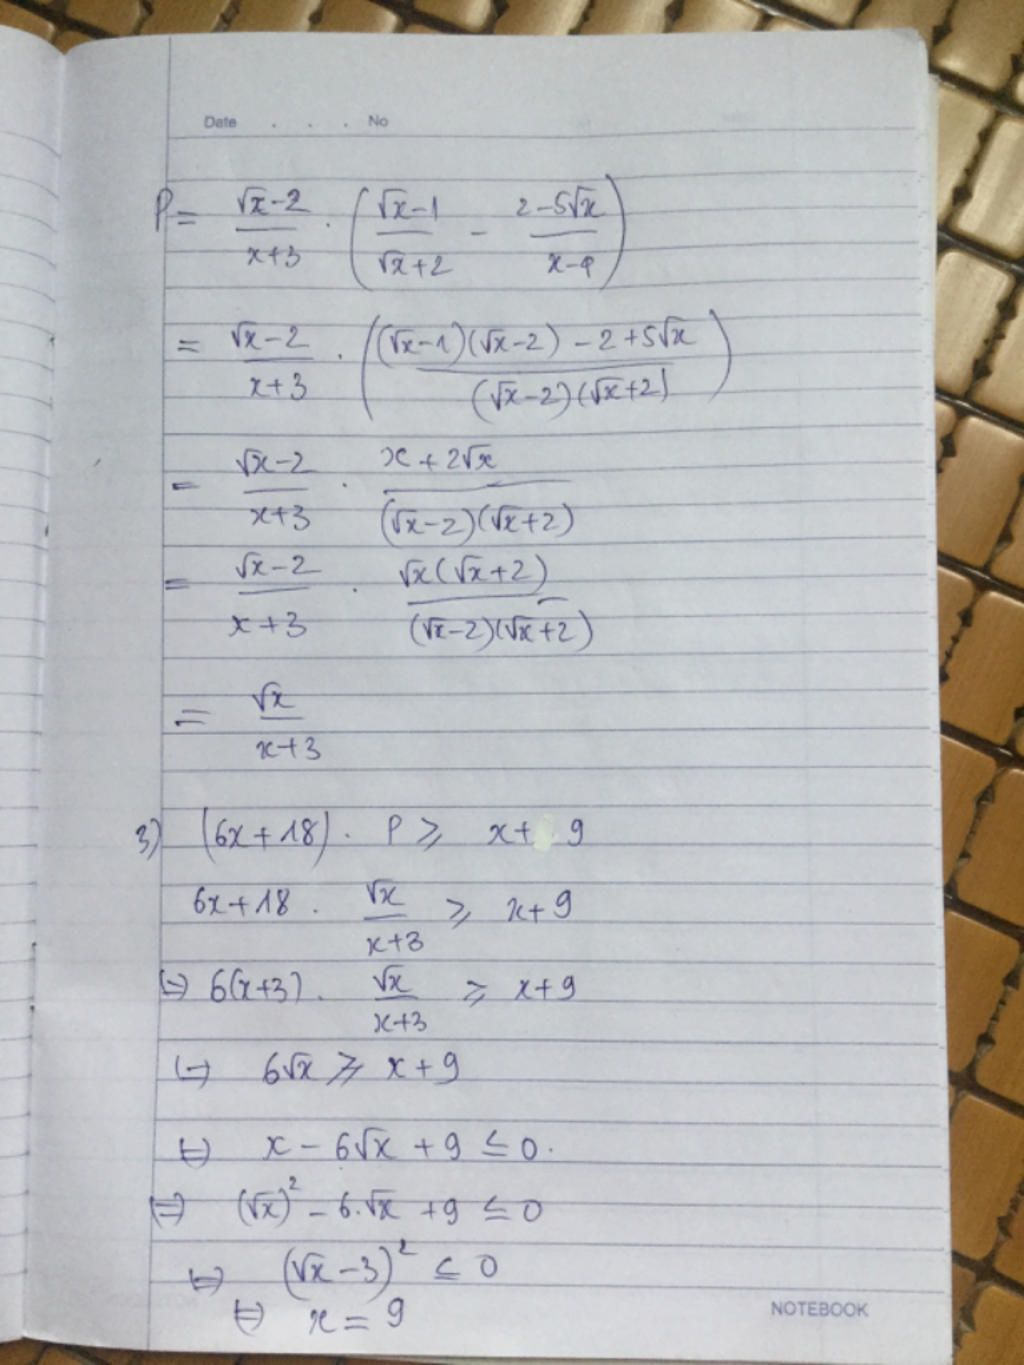 Date . . . No
P = \frac{\sqrt{x}-2}{x+3} \cdot \left( \frac{\sqrt{x}-1}{\sqrt{x}+2} - \frac{2-5\sqrt{x}}{x-4} \right)
= \frac{\sqrt{x}-2}{x+3} \cdot \left( \frac{(\sqrt{x}-1)(\sqrt{x}-2)-2+5\sqrt{x}}{(\sqrt{x}-2)(\sqrt{x}+2)} \right)
= \frac{\sqrt{x}-2}{x+3} \cdot \frac{x+2\sqrt{x}}{(\sqrt{x}-2)(\sqrt{x}+2)}
= \frac{\sqrt{x}-2}{x+3} \cdot \frac{\sqrt{x}(\sqrt{x}+2)}{(\sqrt{x}-2)(\sqrt{x}+2)}
= \frac{\sqrt{x}}{x+3}
3) (6x+18) . P ⩾ x+ 9
6x+18 . \frac{\sqrt{x}}{x+3} ⩾ x+9
⇔ 6(x+3) . \frac{\sqrt{x}}{x+3} ⩾ x+9
⇔ 6√x ⩾ x+9
⇔ x - 6√x + 9 ≤ 0.
⇔ (√x)² - 6.√x + 9 ≤ 0
⇔ (√x - 3)² ≤ 0
⇔ x = 9
NOTEBOOK